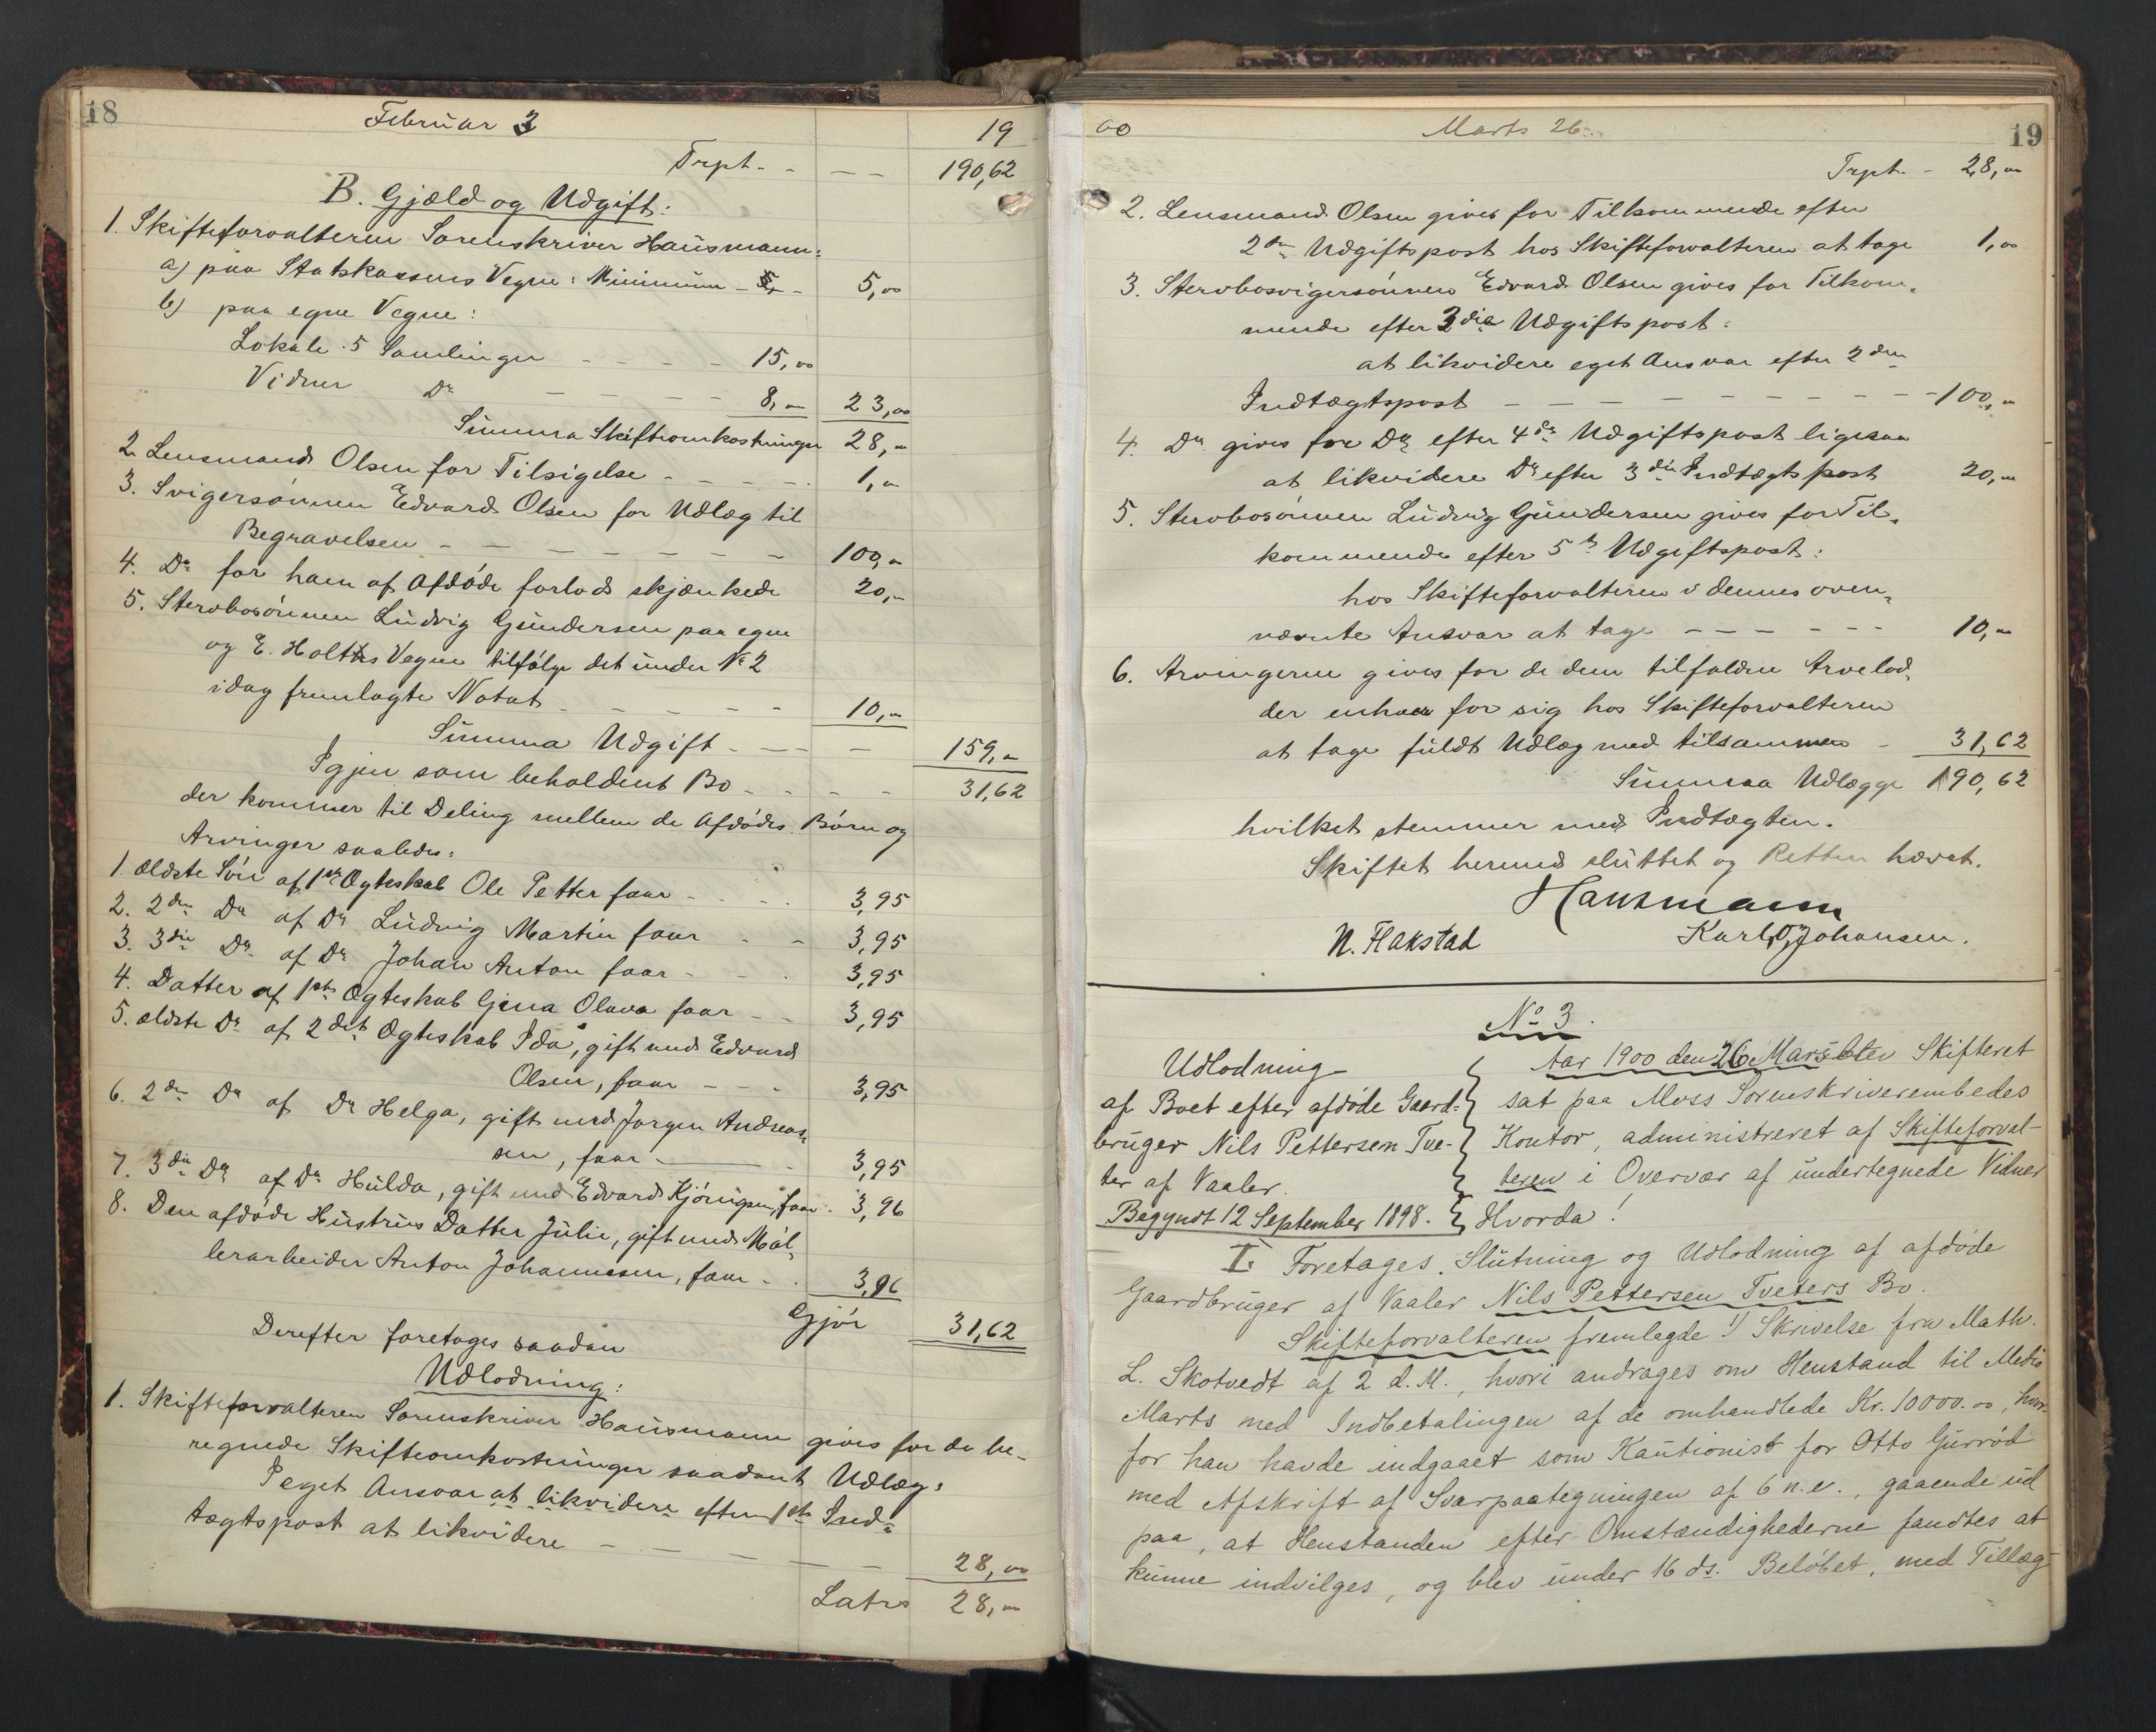 18
Februar 3
19
Trpt. - - - 190,62
B. Gjæld og Udgift:
1. Skifteforvalteren Sorenskriver Hausmann:
a) paa Statskassens Vegne: Minimum - 5, - 5,00
b) paa egne Vegne:
Lokale 5 Samlinger - - - - 15,00
Vidner Do - - - - 8,- 23,00
Summa Skifteomkostninger 28,-
2. Lensmand Olsen for Tilsigelse - - - - 1,-
3. Svigersønnen Edvard Olsen for Udlæg til
Begravelsen - - - - - - - 100,-
4. Do for ham af Afdøde forlods skjænkede 20,-
5. Stervbosønnen Ludvig Gundersen paa egne
og E. Holths Vegne tilfølge det under No 2
idag fremlagte Notat - - - - - 10,-
Summa Udgift - - - 159,-
Igjen som beholdent Bo - - - - 31,62
der kommer til Deling mellem de Afdødes Børn og
Arvinger saaledes:
1. ældste Søn af 1ste Ægteskab Ole Petter faar - - - - 3,95
2. 2den Do af Do Ludvig Martin faar - - 3,95
3. 3die Do af Do Johan Anton faar - - - 3,95
4. Datter af 1ste Ægteskab Gina Olava faar - - 3,95
5. ældste Do af 2det Ægteskab Ida, gift med Edvard
Olsen, faar - - - 3,95
6. 2den Do af Do Helga, gift med Jørgen Andreas-
sen, faar - 3,95
7. 3die Do af Do Hulda, gift med Edvard Kjønigsen, faar - 3,96
8. Den afdøde Hustrus Datter Julie, gift med Møl-
lerarbeider Anton Johannesen, faar - - 3,96
Gjør 31,62
Derefter foretages saadan
Udlodning:
1. Skifteforvalteren Sorenskriver Hausmann gives for de be-
regnede Skifteomkostninger saadant Udlæg:
I eget Ansvar at likvidere efter 1ste Ind-
tægtspost at likvidere - - - - - 28,00
Latus 28,-
00
Marts 26.
19
Trpt. - 28,00
2. Lensmand Olsen gives for Tilkommende efter
2den Udgiftspost hos Skifteforvalteren at tage 1,00
3. Stervbosvigersønnen Edvard Olsen gives for Tilkom-
mende efter 3die Udgiftspost:
at likvidere eget Ansvar efter 2den
Indtægtspost - - - - - - - - - 100,-
4. Do gives for Do efter 4de Udgiftspost ligesaa
at likvidere Do efter 3die Indtægtspost 20,-
5. Stervbosønnen Ludvig Gundersen gives for Til-
kommende efter 5te Udgiftspost:
hos Skifteforvalteren i dennes oven-
nævnte Ansvar at tage - - - - - - 10,-
6. Arvingerne gives for de dem tilfaldne Arvelod-
der enhver for sig hos Skifteforvalteren
at tage fuldt Udlæg med tilsammen - 31,62
Summa Udlægge 190,62
hvilket stemmer med Indtægten.
Skiftet hermed sluttet og Retten hævet.
Hausmann
N. Flakstad Karl O. Johansen.
No 3.
Udlodning
af Boet efter afdøde Gaard-
bruger Nils Pettersen Tve-
ter af Vaaler.
Begyndt 12 September 1898.
Aar 1900 den 26 Mars blev Skifteret
sat paa Moss Sorenskriverembedes
Kontor, administreret af Skifteforval-
teren i Overvær af undertegnede Vidner
Hvorda!
I. Foretages Slutning og Udlodning af afdøde
Gaardbruger af Vaaler Nils Pettersen Tveters Bo.
Skifteforvalteren fremlagde 1) Skrivelse fra Math.
L. Skotvedt af 2 d.M., hvori andrages om Henstand til Medio
Marts med Indbetalingen af de omhandlede Kr. 10000.00, hvor-
for han havde indgaaet som Kautionist for Otto Gurrød
med Afskrift af Svarpaategningen af 6 n.e., gaaende ud
paa, at Henstanden efter Omstændighederne fandtes at
kunne indvilges, og blev under 16 ds. Beløbet, med Tillæg